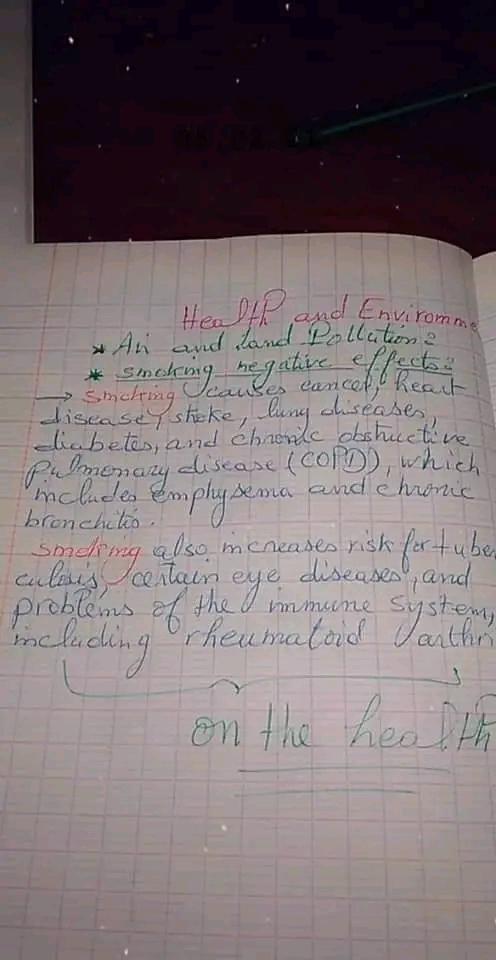 Health and Environme
* Air and Land Pollution:
* smoking negative effects:
→ smoking causes cancer, heart
disease, stroke, lung diseases,
diabetes, and chronic obstructive
pulmonary disease (COPD), which
includes emphysema and chronic
bronchitis.
smoking also increases risk for tuber
culosis, certain eye diseases, and
problems of the immune system,
including rheumatoid arthri
on the health